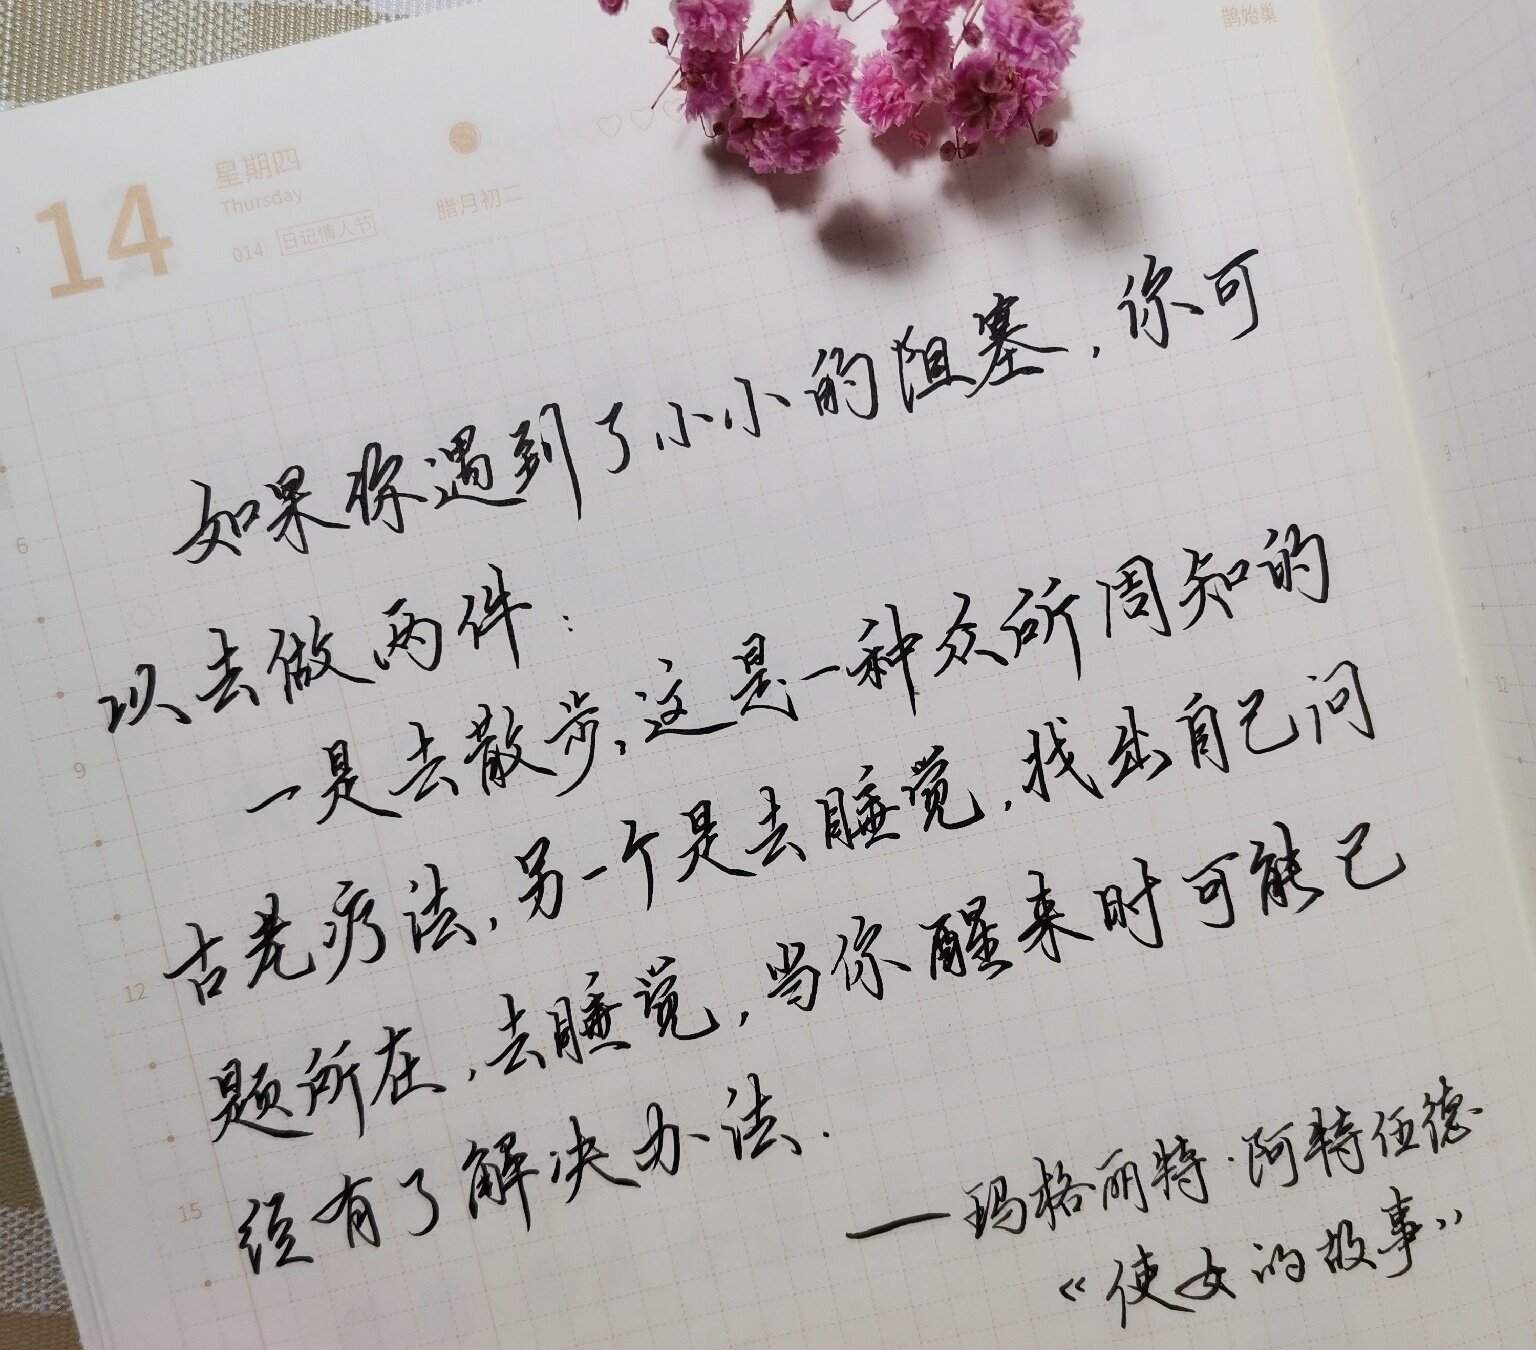 鹊始巢
14
星期四
Thursday
腊月初二
014 日记情人节
如果你遇到了小小的阻塞,你可
以去做两件:
一是去散步,这是一种众所周知的
古老疗法,另一个是去睡觉,找出自己问
题所在,去睡觉,当你醒来时可能已
经有了解决办法.
——玛格丽特·阿特伍德
《使女的故事》
6
9
12
15
6
9
12